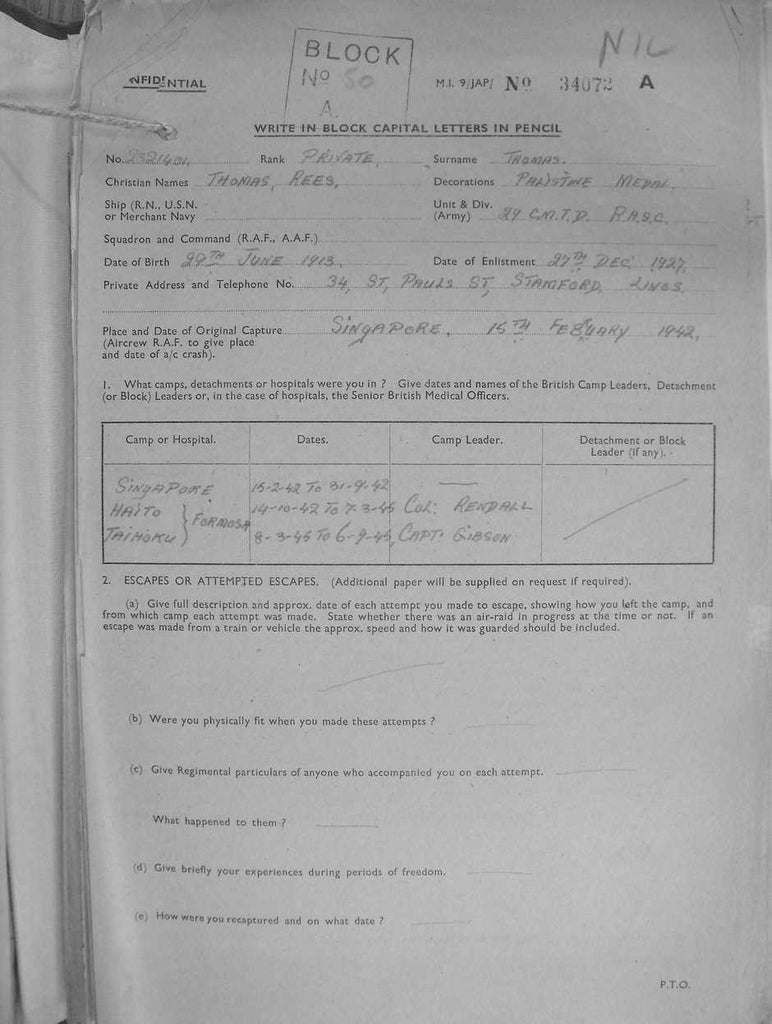 BLOCK
Nº 50
A
NIL
NFIDENTIAL
M.I. 9/JAP/ Nº 34072 A
WRITE IN BLOCK CAPITAL LETTERS IN PENCIL
No. Rank PRIVATE, Surname THOMAS.
Christian Names THOMAS, REES, Decorations MEDAL,
Ship (R.N., U.S.N. or Merchant Navy
Unit & Div. (Army) 27 C.M.T.D. R.A.S.C.
Squadron and Command (R.A.F., A.A.F.)
Date of Birth 29TH JUNE 1913. Date of Enlistment 27TH DEC 1927.
Private Address and Telephone No. 34, ST, PAULS ST, STAMFORD, LINCS.
Place and Date of Original Capture SINGAPORE, 15TH 1942,
(Aircrew R.A.F. to give place
and date of a/c crash).
1. What camps, detachments or hospitals were you in ? Give dates and names of the British Camp Leaders, Detachment
(or Block) Leaders or, in the case of hospitals, the Senior British Medical Officers.
Camp or Hospital. Dates. Camp Leader. Detachment or Block Leader (if any).
SINGAPORE 15-2-42 TO 31-9-42
HAITO } FORMOSA 14-10-42 TO 7-3-45 COL: RENDALL
TAIHOKU } 8-3-45 TO 6-9-45, CAPT: GIBSON
2. ESCAPES OR ATTEMPTED ESCAPES. (Additional paper will be supplied on request if required).
(a) Give full description and approx. date of each attempt you made to escape, showing how you left the camp, and
from which camp each attempt was made. State whether there was an air-raid in progress at the time or not. If an
escape was made from a train or vehicle the approx. speed and how it was guarded should be included.
(b) Were you physically fit when you made these attempts ?
(c) Give Regimental particulars of anyone who accompanied you on each attempt.
What happened to them ?
(d) Give briefly your experiences during periods of freedom.
(e) How were you recaptured and on what date ?
P.T.O.